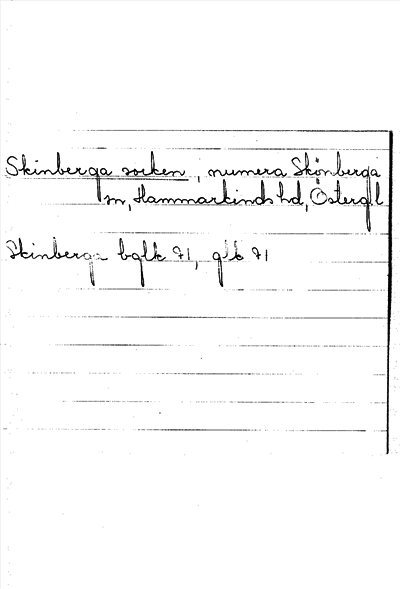 Skinberga socken, numera Skönberga
sn, Hammarkinds hd, Östergl
Skinberga bglk 71, glk 71